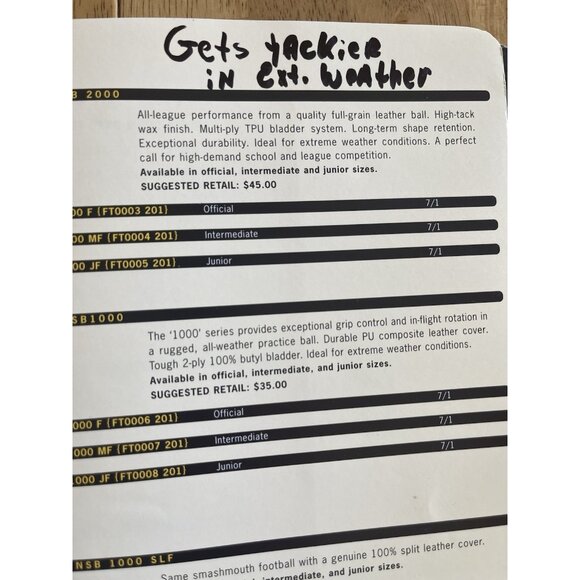 Gets tackier
in ext. weather
B 2000
All-league performance from a quality full-grain leather ball. High-tack
wax finish. Multi-ply TPU bladder system. Long-term shape retention.
Exceptional durability. Ideal for extreme weather conditions. A perfect
call for high-demand school and league competition.
Available in official, intermediate and junior sizes.
SUGGESTED RETAIL: $45.00
00 F {FT0003 201} Official 7/1
00 MF {FT0004 201} Intermediate 7/1
00 JF {FT0005 201} Junior 7/1
SB1000
The '1000' series provides exceptional grip control and in-flight rotation in
a rugged, all-weather practice ball. Durable PU composite leather cover.
Tough 2-ply 100% butyl bladder. Ideal for extreme weather conditions.
Available in official, intermediate, and junior sizes.
SUGGESTED RETAIL: $35.00
000 F {FT0006 201} Official 7/1
000 MF {FT0007 201} Intermediate 7/1
1000 JF {FT0008 201} Junior 7/1
NSB 1000 SLF
Same smashmouth football with a genuine 100% split leather cover.
intermediate, and junior sizes.